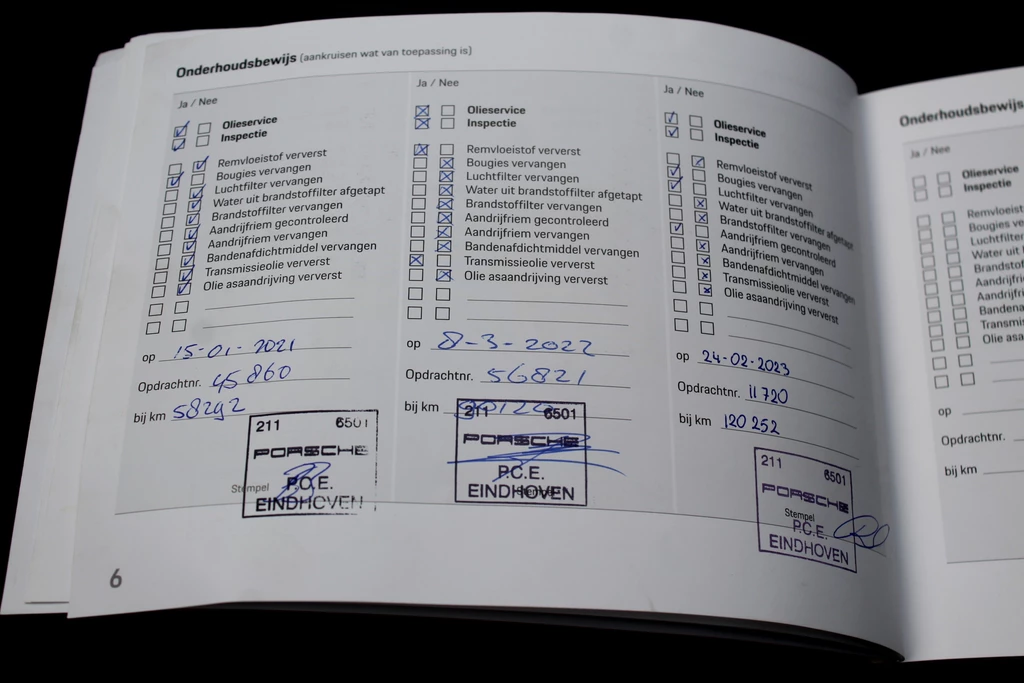 Onderhoudsbewijs (aankruisen wat van toepassing is)
Ja / Nee
Olieservice
Inspectie
Remvloeistof ververst
Bougies vervangen
Luchtfilter vervangen
Water uit brandstoffilter afgetapt
Brandstoffilter vervangen
Aandrijfriem gecontroleerd
Aandrijfriem vervangen
Bandenafdichtmiddel vervangen
Transmissieolie ververst
Olie asaandrijving ververst
op 15-01-2021
Opdrachtnr. 45860
bij km 58292
211 6501
PORSCHE
Stempel P.C.E.
EINDHOVEN
6
Ja / Nee
Olieservice
Inspectie
Remvloeistof ververst
Bougies vervangen
Luchtfilter vervangen
Water uit brandstoffilter afgetapt
Brandstoffilter vervangen
Aandrijfriem gecontroleerd
Aandrijfriem vervangen
Bandenafdichtmiddel vervangen
Transmissieolie ververst
Olie asaandrijving ververst
op 8-3-2022
Opdrachtnr. 56821
bij km
211 6501
PORSCHE
P.C.E.
Stempel
EINDHOVEN
Ja / Nee
Olieservice
Inspectie
Remvloeistof ververst
Bougies vervangen
Luchtfilter vervangen
Water uit brandstoffilter afgetapt
Brandstoffilter vervangen
Aandrijfriem gecontroleerd
Aandrijfriem vervangen
Bandenafdichtmiddel vervangen
Transmissieolie ververst
Olie asaandrijving ververst
op 24-02-2023
Opdrachtnr. 11720
bij km 120 252
211 6501
PORSCHE
Stempel
P.C.E.
EINDHOVEN
Onderhoudsbewijs
Ja / Nee
Olieservice
Inspectie
Remvloeist
Bougies ve
Luchtfilter
Water uit
Brandstof
Aandrijfri
Aandrijfri
Bandena
Transmis
Olie asa
op
Opdrachtnr.
bij km